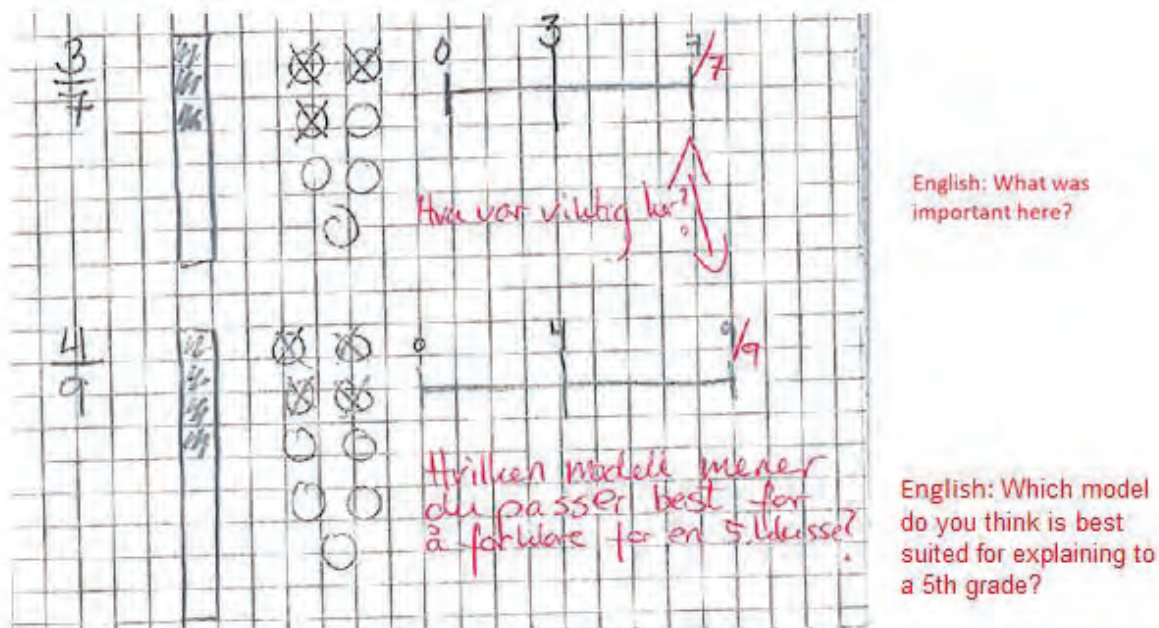 3/7
0 3 7/7
Hva var viktig her?
English: What was
important here?
4/9
0 4 9/9
Hvilken modell mener
du passer best for
å forklare for en 5.klasse?
English: Which model
do you think is best
suited for explaining to
a 5th grade?